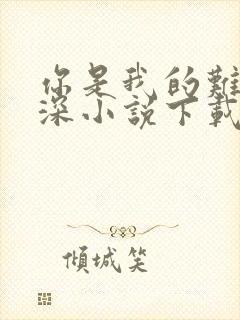 你是我的難
深小說下載
傾城笑